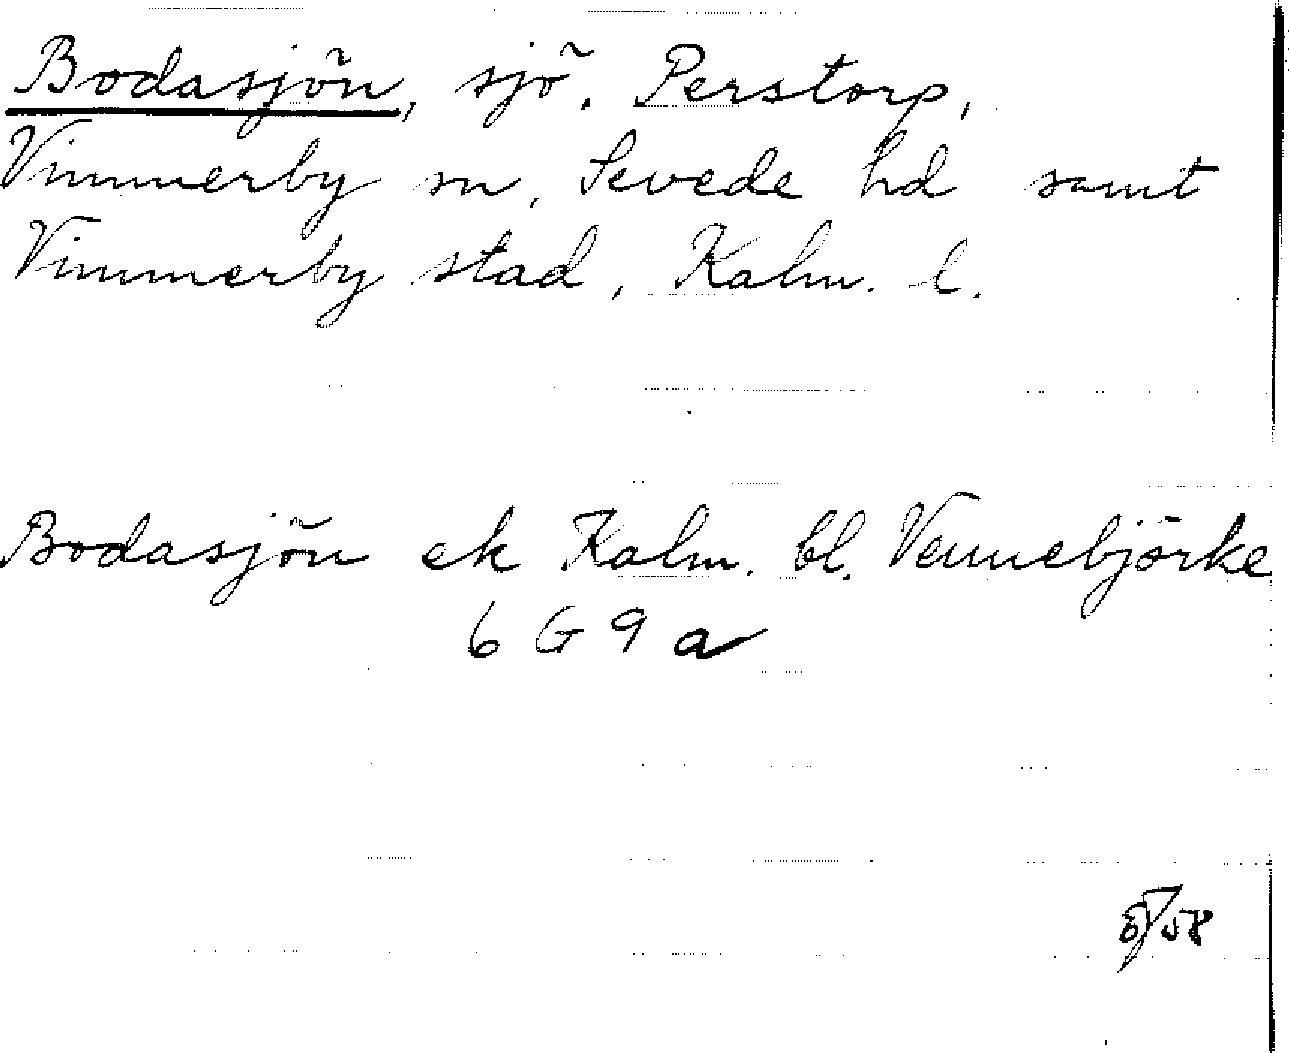 Bodasjön, sjö. Perstorp,
Vimmerby sn, Sevede hd samt
Vimmerby stad, Kalm. l.
Bodasjön ek Kalm. bl. Vennebjörke
6 G 9 a